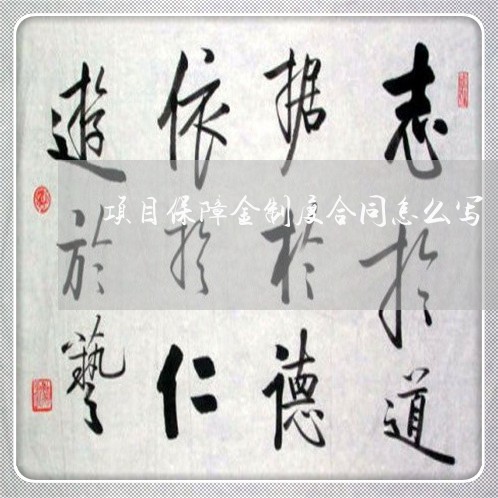 志於道
据於德
依於仁
遊於藝
项目保障金制度合同怎么写